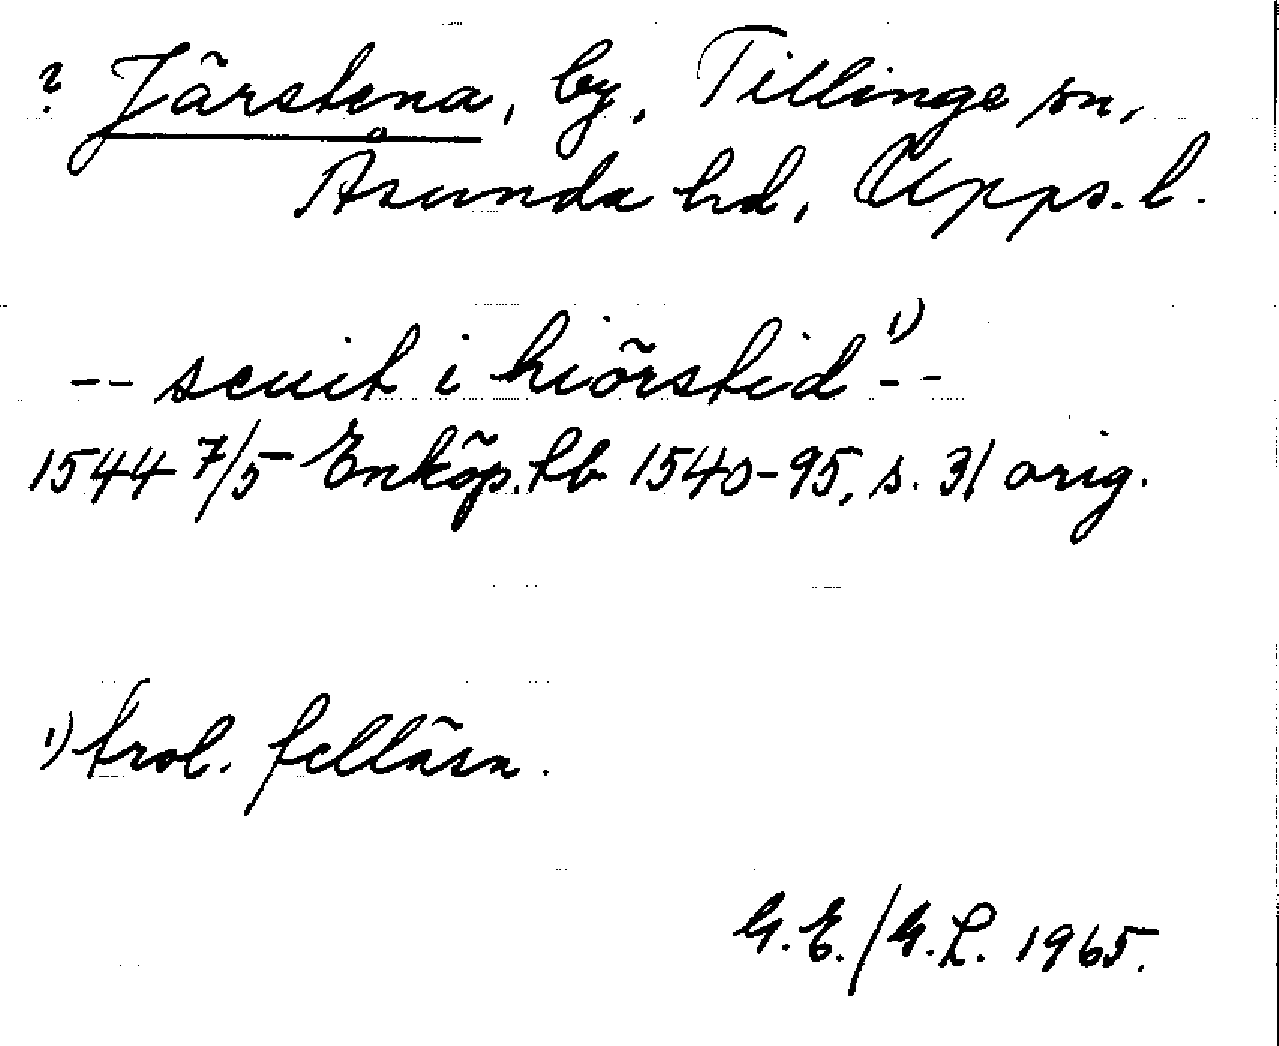 ? Järstena, by, Tillinge sn,
Åsunda hd, Upps. l.
-- scuit i hiörstid ¹) --
1544 7/5 Enköp. tb 1540-95, s. 31 orig.
¹) trol. felläsn.
G.E./G.L. 1965.